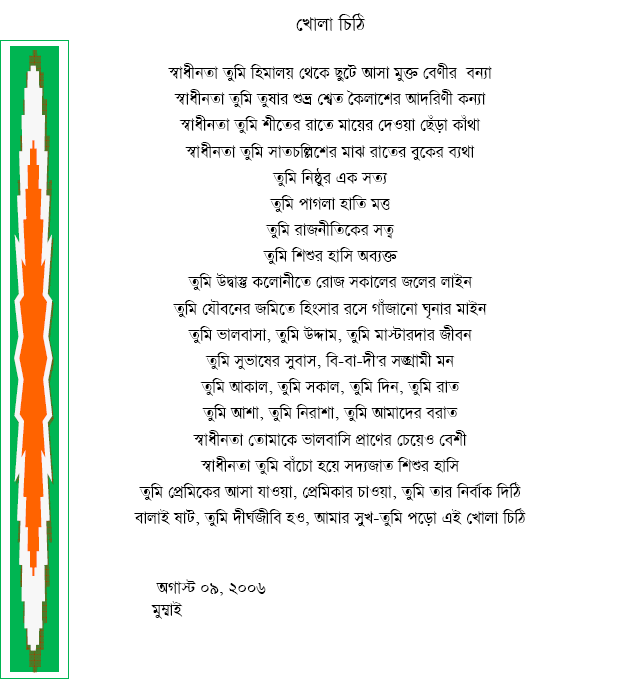 খোলা চিঠি
স্বাধীনতা তুমি হিমালয় থেকে ছুটে আসা মুক্ত বেণীর বন্যা
স্বাধীনতা তুমি তুষার শুভ্র শ্বেত কৈলাশের আদরিণী কন্যা
স্বাধীনতা তুমি শীতের রাতে মায়ের দেওয়া ছেঁড়া কাঁথা
স্বাধীনতা তুমি সাতচল্লিশের মাঝ রাতের বুকের ব্যথা
তুমি নিষ্ঠুর এক সত্য
তুমি পাগলা হাতি মত্ত
তুমি রাজনীতিকের সত্ব
তুমি শিশুর হাসি অব্যক্ত
তুমি উদ্বাস্তু কলোনীতে রোজ সকালের জলের লাইন
তুমি যৌবনের জমিতে হিংসার রসে গাঁজানো ঘৃনার মাইন
তুমি ভালবাসা, তুমি উদ্দাম, তুমি মাস্টারদার জীবন
তুমি সুভাষের সুবাস, বি-বা-দী'র সঙ্গ্রামী মন
তুমি আকাল, তুমি সকাল, তুমি দিন, তুমি রাত
তুমি আশা, তুমি নিরাশা, তুমি আমাদের বরাত
স্বাধীনতা তোমাকে ভালবাসি প্রাণের চেয়েও বেশী
স্বাধীনতা তুমি বাঁচো হয়ে সদ্যজাত শিশুর হাসি
তুমি প্রেমিকের আসা যাওয়া, প্রেমিকার চাওয়া, তুমি তার নির্বাক দিঠি
বালাই ষাট, তুমি দীর্ঘজীবি হও, আমার সুখ-তুমি পড়ো এই খোলা চিঠি
অগাস্ট ০৯, ২০০৬
মুম্বাই